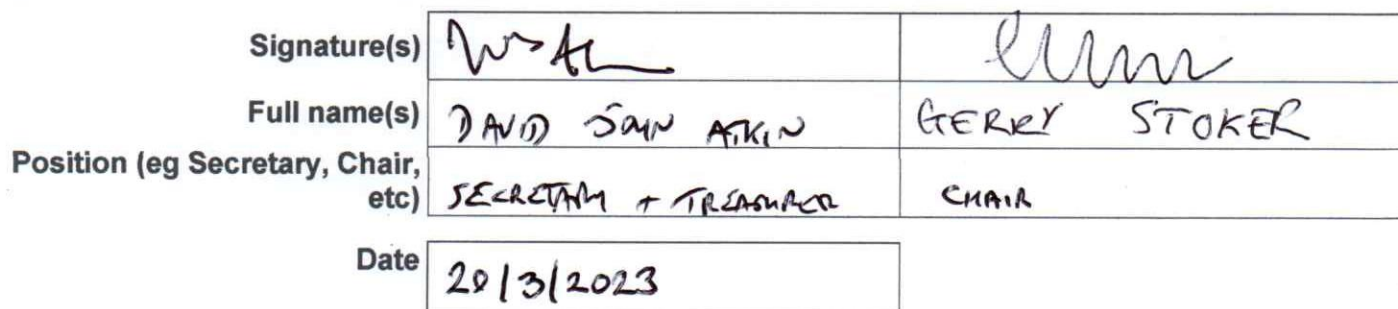 Signature(s)
Full name(s) DAVID JOHN ATKIN GERRY STOKER
Position (eg Secretary, Chair,
etc) SECRETARY + TREASURER CHAIR
Date 20/3/2023